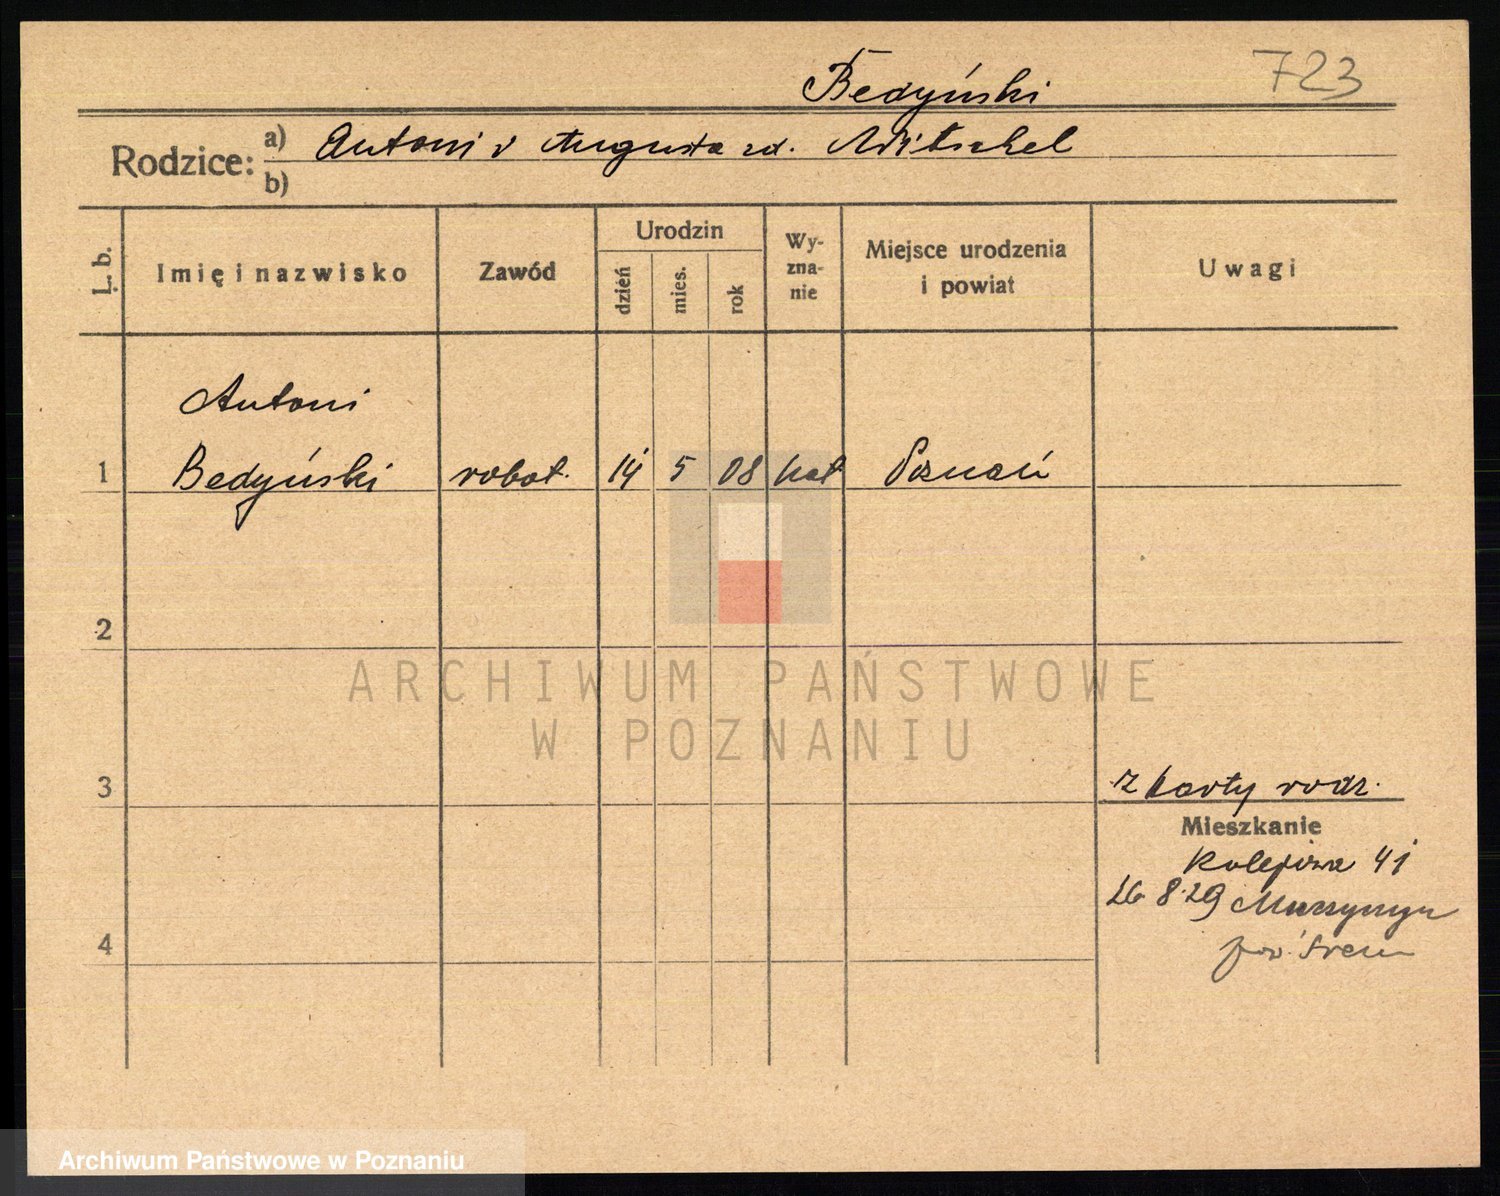 Bedyński
723
Rodzice: a) Antoni i Augusta zd. Witschel
b)
L. b. Imię i nazwisko Zawód Urodzin dzień mies. rok Wy-zna-nie Miejsce urodzenia i powiat Uwagi
Antoni
1 Bedyński robot. 14 5 08 kat Poznań
2
ARCHIWUM PAŃSTWOWE
W POZNANIU
3 z karty rodz.
Mieszkanie
Kolejowa 41
26 8.29
4 pow. Śrem
Archiwum Państwowe w Poznaniu